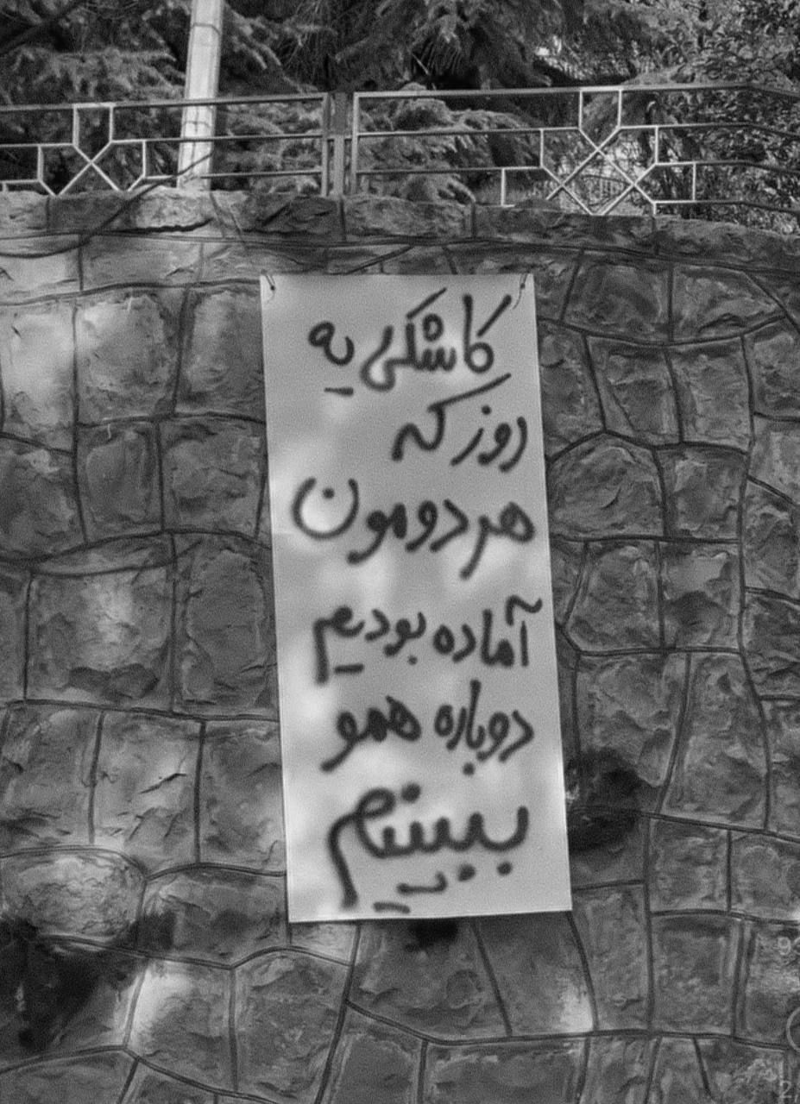 کاشکی یه
روز که
هر دومون
آماده بودیم
دوباره همو
ببینیم